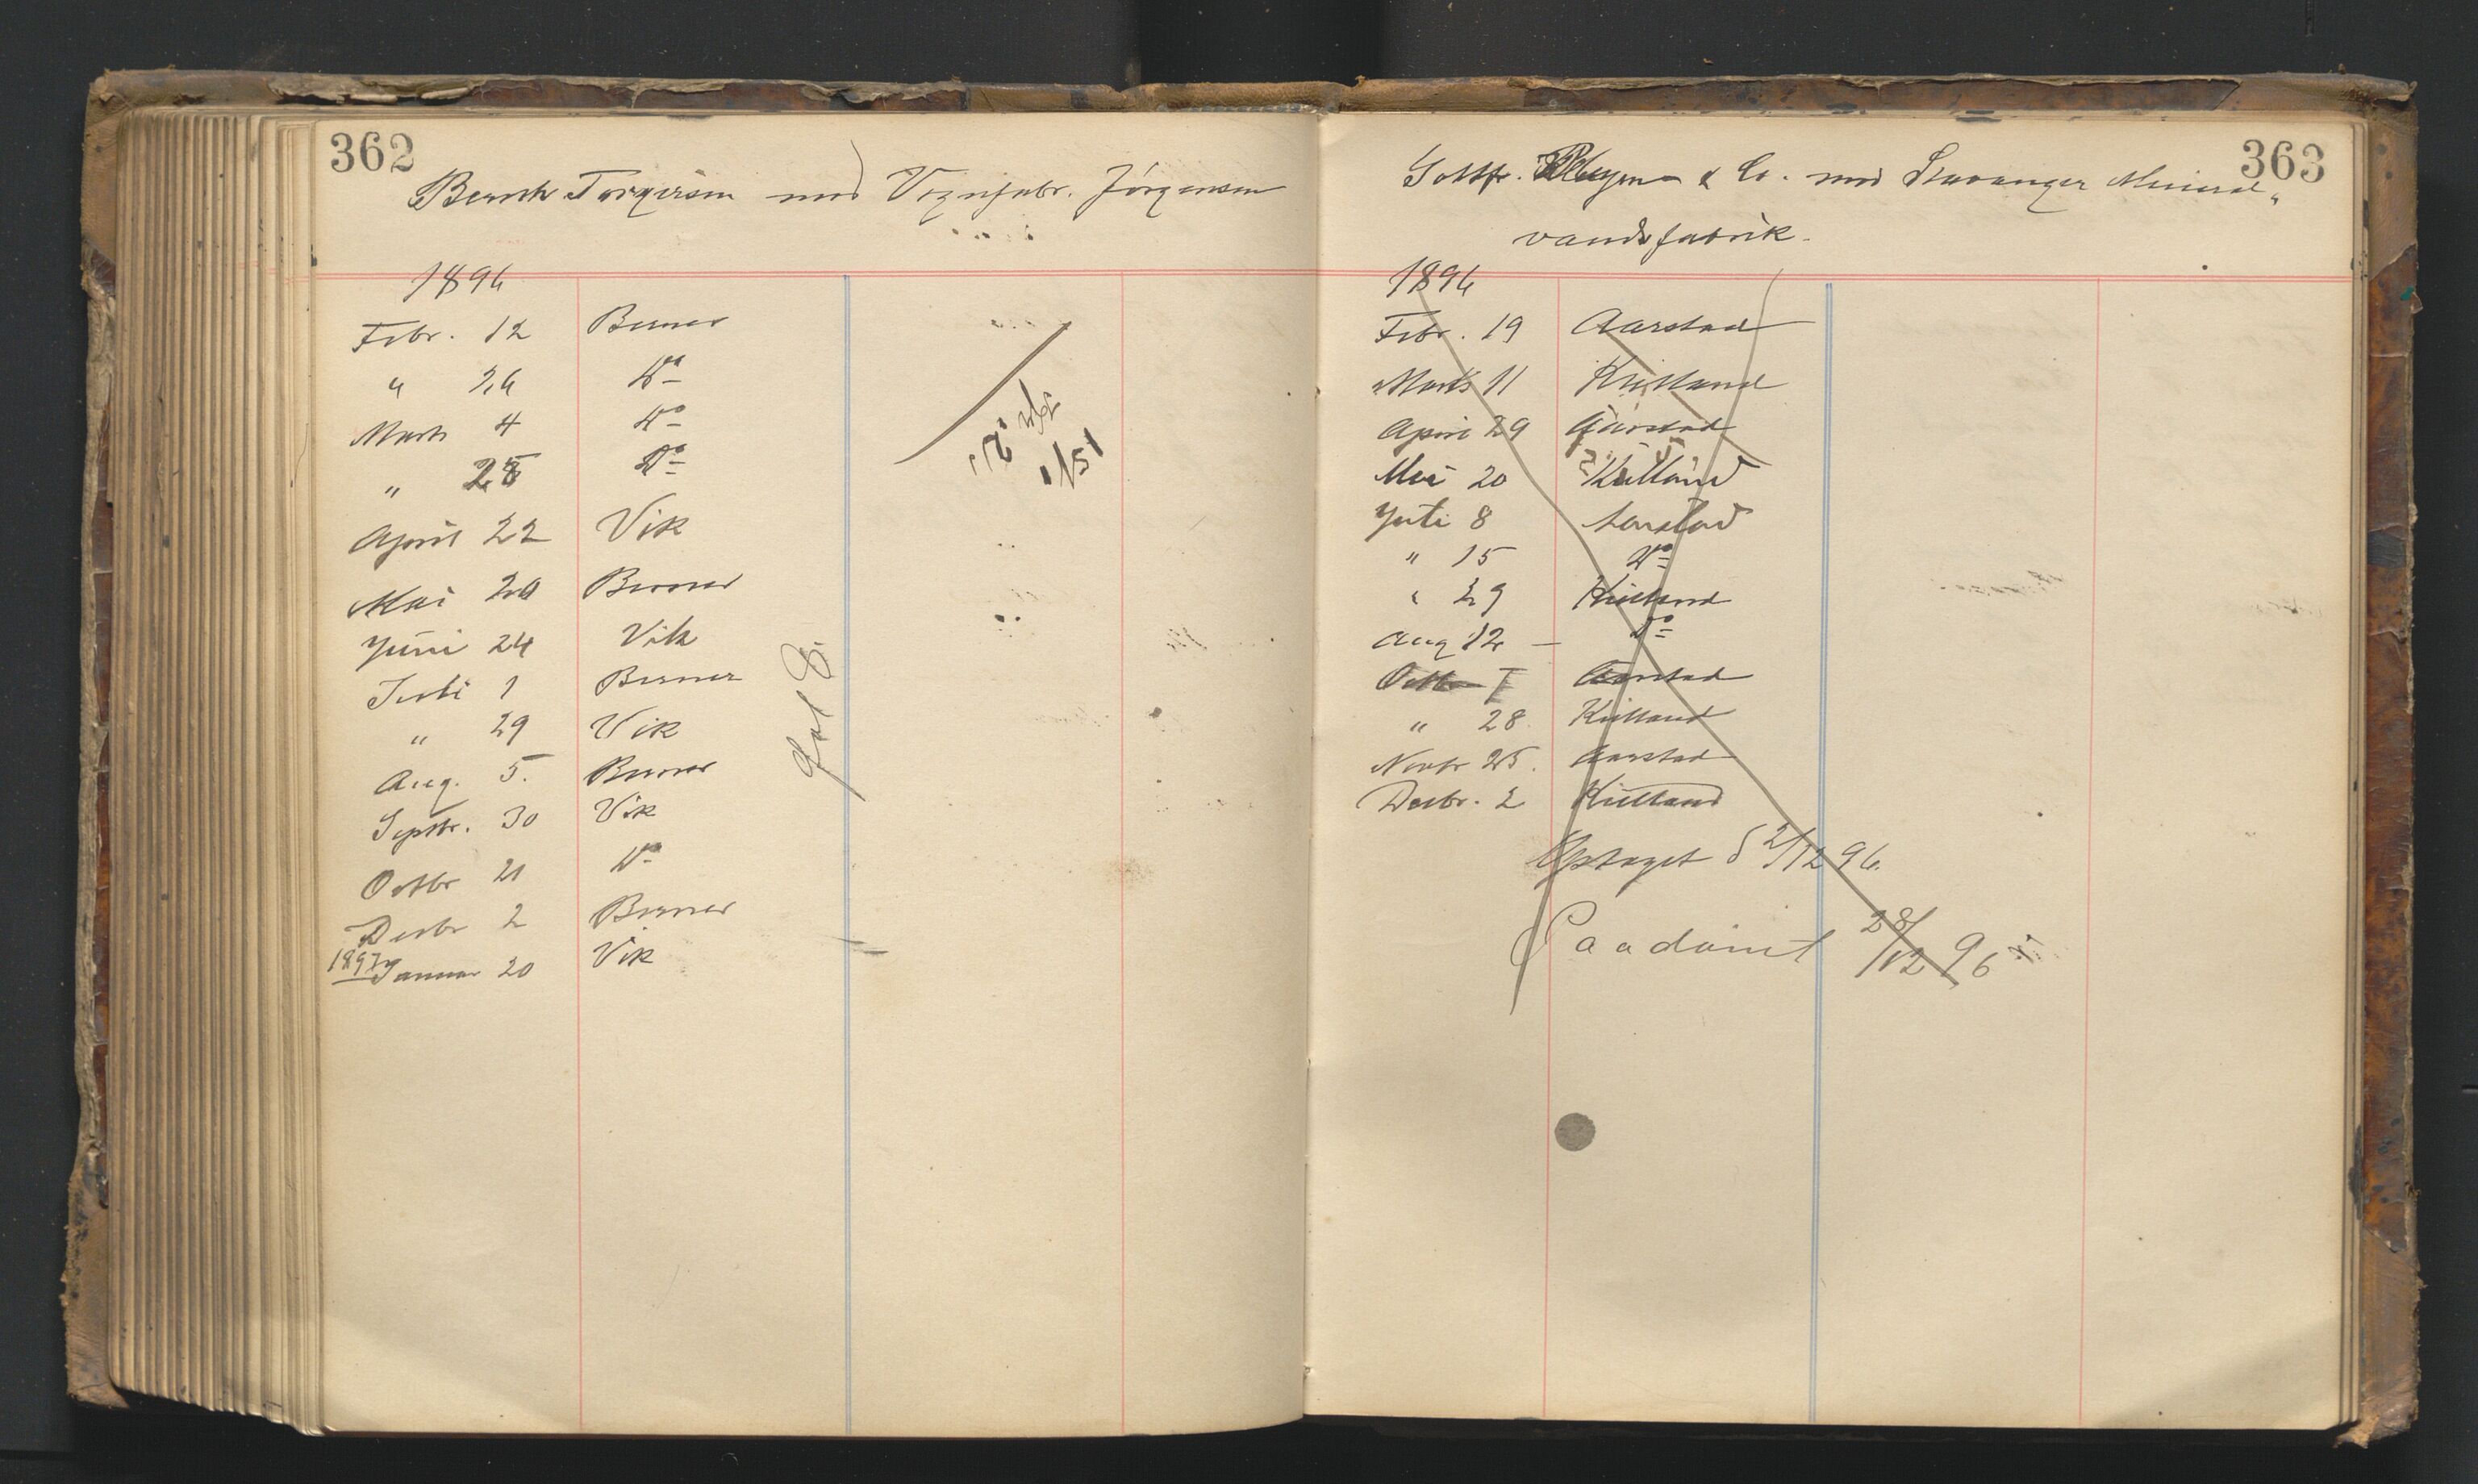 362
Bernh. Torgersen mod Vognfabr. Jörgensen
1896
Febr. 12 Berner
" 26 Do
Marts 4 Do
" 25 Do
April 22 Vik
Mai 20 Berner
Juni 24 Vik
Juli 1 Berner
" 29 Vik
Aug. 5. Berner
Septbr. 30 Vik
Octbr 21 Do
Decbr 2 Berner
1897 Januar 20 Vik
fol 8.
363
Gottfr. & Co. mod Stavanger Mineral-
vandsfabrik.
1896
Febr. 19 Aarstad
Marts 11 Kielland
April 29 Aarstad
Mai 20 Kielland
Juli 8 Aarstad
" 15 Do
" 29 Kielland
Aug 12 — Do
Octbr 7 Aarstad
" 28 Kielland
Novbr 25. Aarstad
Decbr. 2 Kielland
Optaget d 2/12 96.
Paadömt 28/12 96